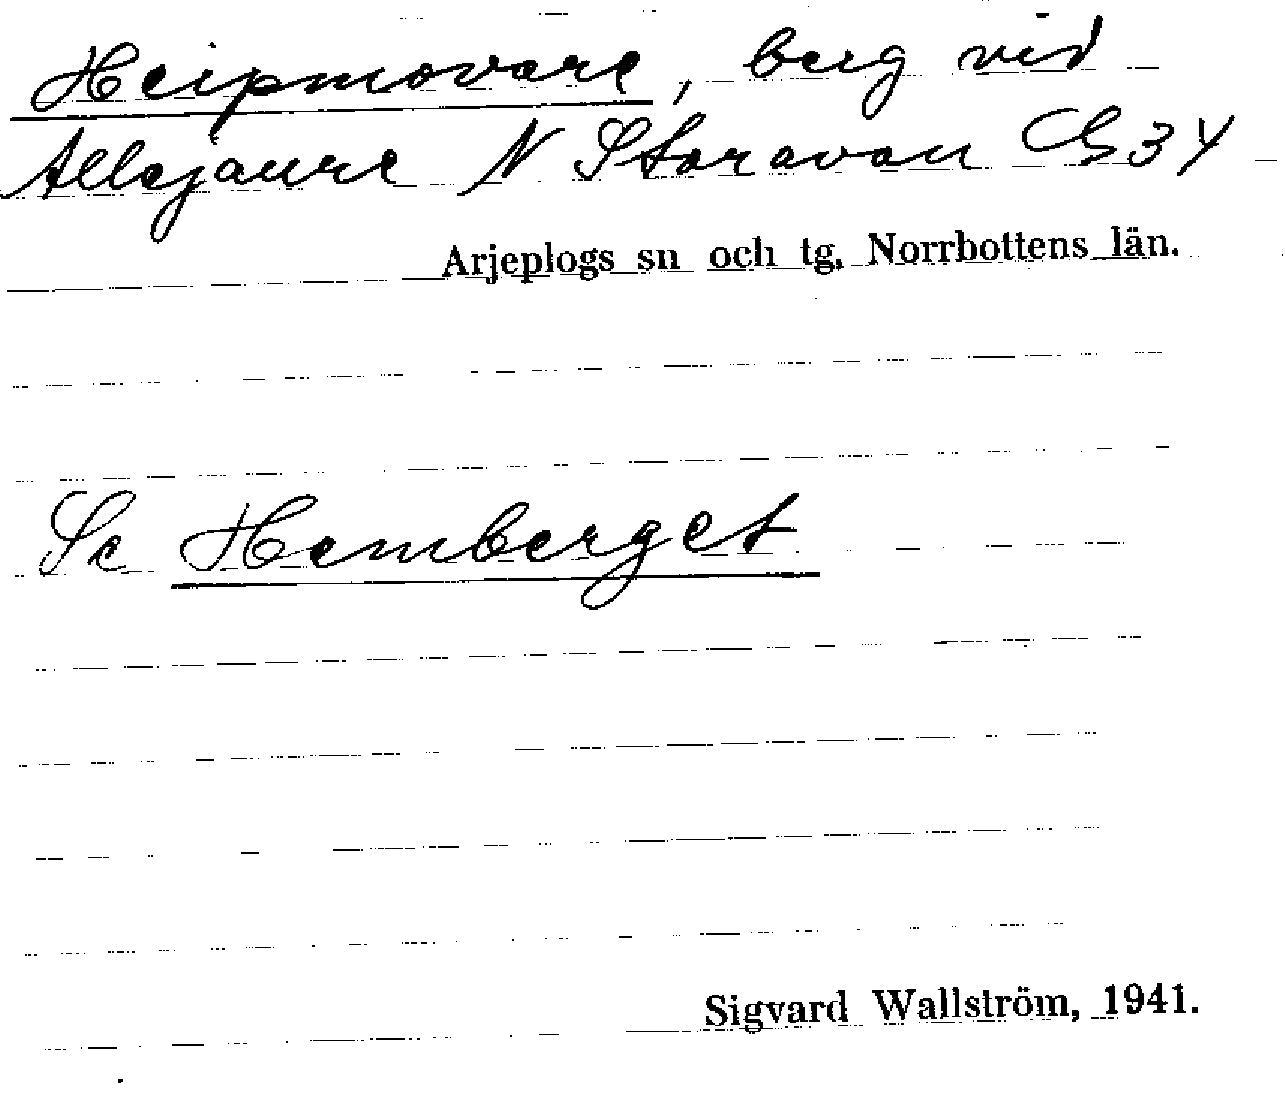 Heipmovare, berg vid
Allejaure N Storavan G34
Arjeplogs sn och tg, Norrbottens län.
Se Hemberget
Sigvard Wallström, 1941.